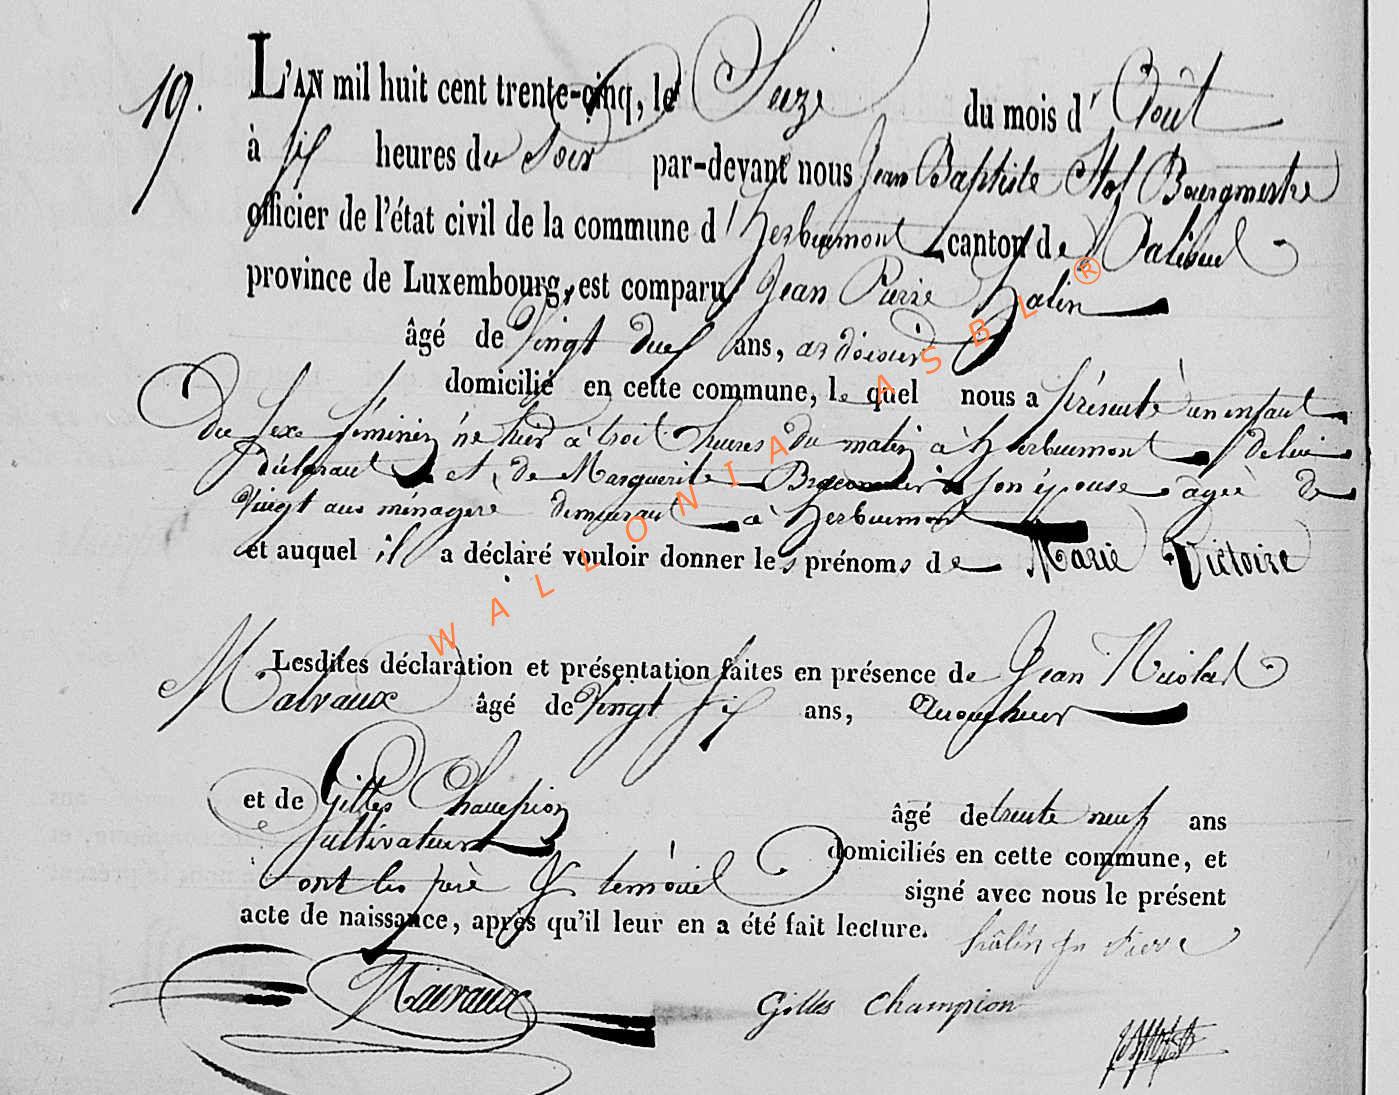 19.
L'AN mil huit cent trente-cinq, le Seize du mois d'Aout
à six heures du Soir par-devant nous Jean Baptiste Bourgmestre
officier de l'état civil de la commune d'herbeumont canton de Paliseul
province de Luxembourg, est comparu Jean Pierre halin
âgé de Vingt deux ans, ardoisier
domicilié en cette commune, le quel nous a présenté un enfant
Du Sexe féminin né hier à trois heures du matin à herbeumont, de lui
déclarant et de Marguerite Braconnier son épouse agée de
Vingt ans ménagère demeurant à herbeumont
et auquel il a déclaré vouloir donner les prénoms de Marie Victoire
Lesdites déclaration et présentation faites en présence de Jean Nicolas
Malvaux âgé de Vingt six ans,
et de Gilles Champion âgé de trente neuf ans
Cultivateur domiciliés en cette commune, et
ont les père & témoins signé avec nous le présent
acte de naissance, après qu'il leur en a été fait lecture.
halin jn Pierre
Gilles Champion
WALLONIA ASBL ®